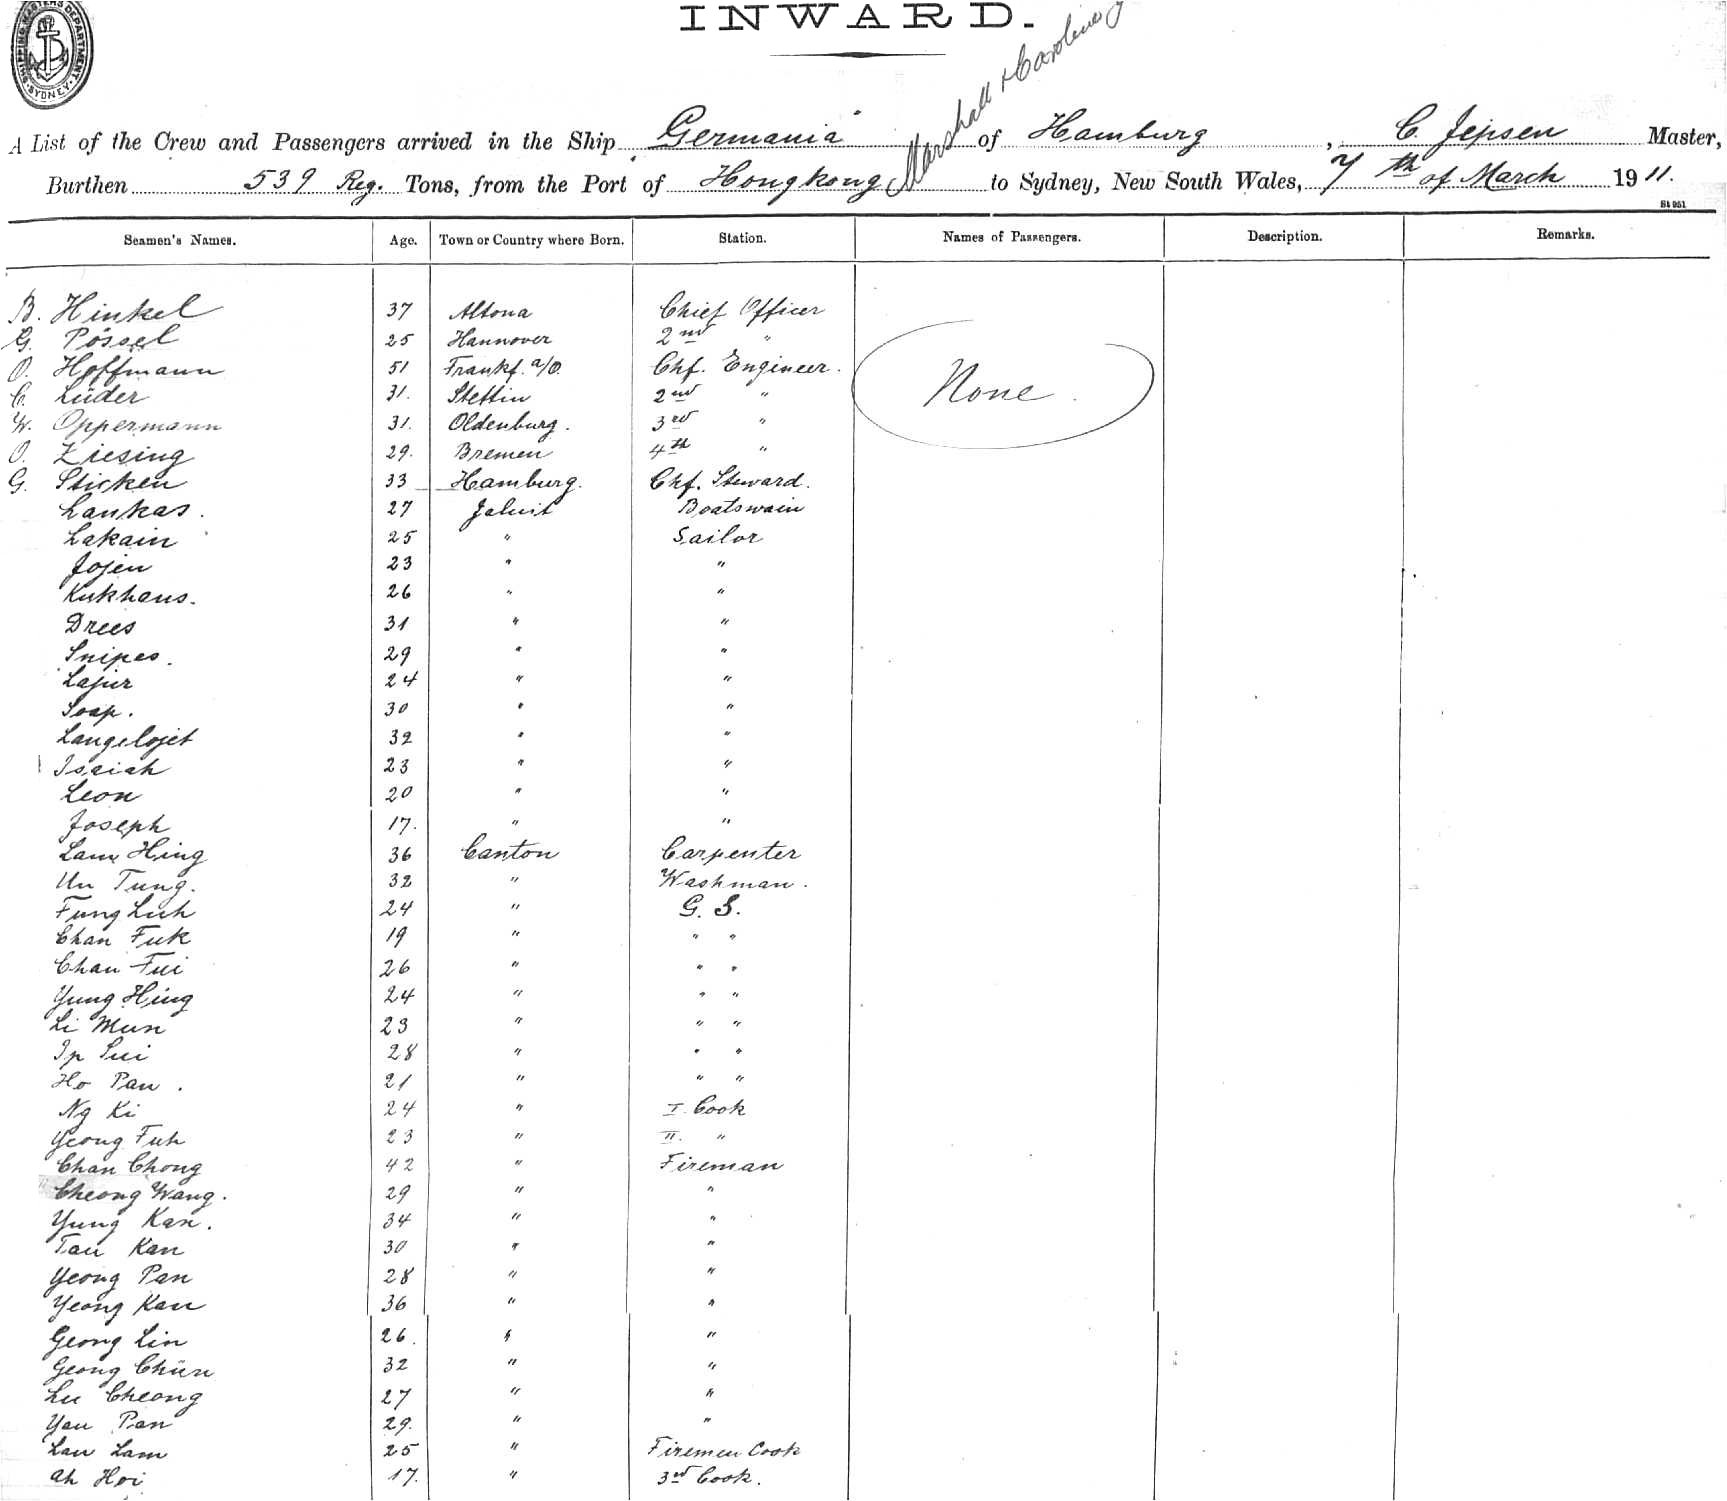 INWARD.
SHIPPING MASTERS DEPARTMENT SYDNEY
Marshall & Carolines
A List of the Crew and Passengers arrived in the Ship "Germania" of Hamburg, C. Jepsen Master,
Burthen 539 Reg. Tons, from the Port of Hongkong to Sydney, New South Wales, 7th of March 1911.
St 951
Seamen's Names. Age. Town or Country where Born. Station. Names of Passengers. Description. Remarks.
B. Hinkel 37 Altona Chief Officer
G. Pössel 25 Hannover 2nd "
O. Hoffmann 51 Frankf. a/O. Chf. Engineer.
None.
C. Lüder 31. Stettin 2nd "
W. Oppermann 31. Oldenburg. 3rd "
O. Ziesing 29. Bremen 4th "
G. Sticken 33 Hamburg. Chf. Steward.
Laukas. 27 Jaluit Boatswain
Lakain 25 " Sailor
Jojen 23 " "
Kukhaus. 26 " "
Drees 31 " "
Snipes. 29 " "
Lajur 24 " "
Soap. 30 " "
Langelojet 32 " "
Isaiah 23 " "
Leon 20 " "
Joseph 17. " "
Lam Hing 36 Canton Carpenter
Un Tung. 32 " Washman.
Fung Luh 24 " G. S.
Chan Fuk 19 " " "
Chan Fui 26 " " "
Yung Hing 24 " " "
Li Mun 23 " " "
Ip Sui 28 " " "
Ho Pan. 21 " " "
Ng Ki 24 " I. Cook
Yeong Fuh 23 " II. "
Chan Chong 42 " Fireman
Cheong Wang. 29 " "
Yung Kan. 34 " "
Tau Kan 30 " "
Yeong Pan 28 " "
Yeong Kau 36 " "
Geong Lin 26. " "
Geong Chün 32 " "
Lu Cheong 27 " "
Yau Pan 29. " "
Lau Lam 25 " Firemen Cook
Ah Hoi 17. " 3rd Cook.